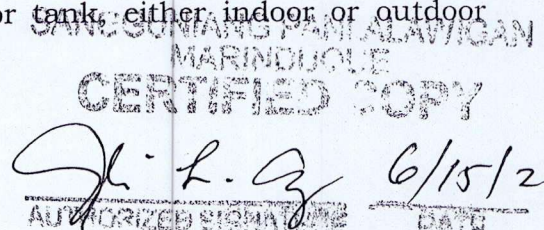 or tank, either indoor or outdoor
SANGGUNIANG PANLALAWIGAN
MARINDUQUE
CERTIFIED COPY
6/15/2
AUTHORIZED SIGNATURE DATE